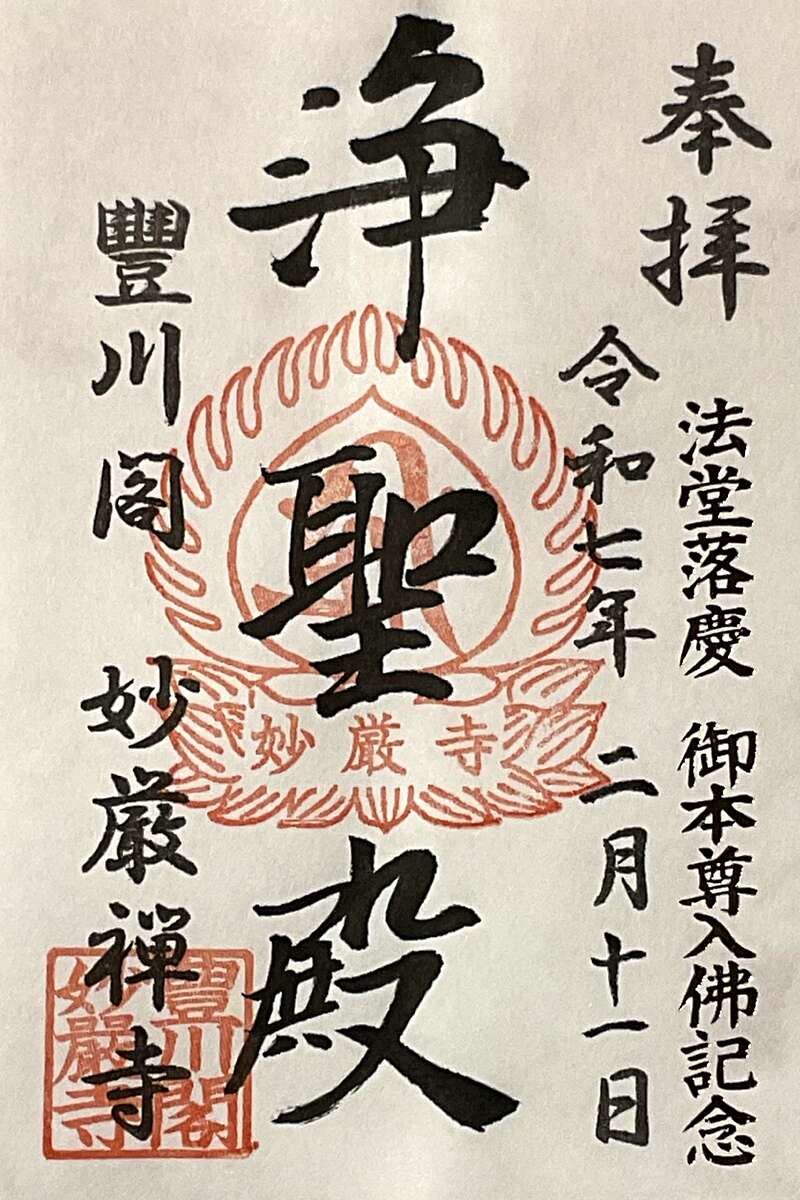 奉拝
法堂落慶 御本尊入佛記念
令和七年 二月十一日
浄聖殿
妙厳寺
豐川閣 妙厳禅寺
豐川閣
妙嚴寺